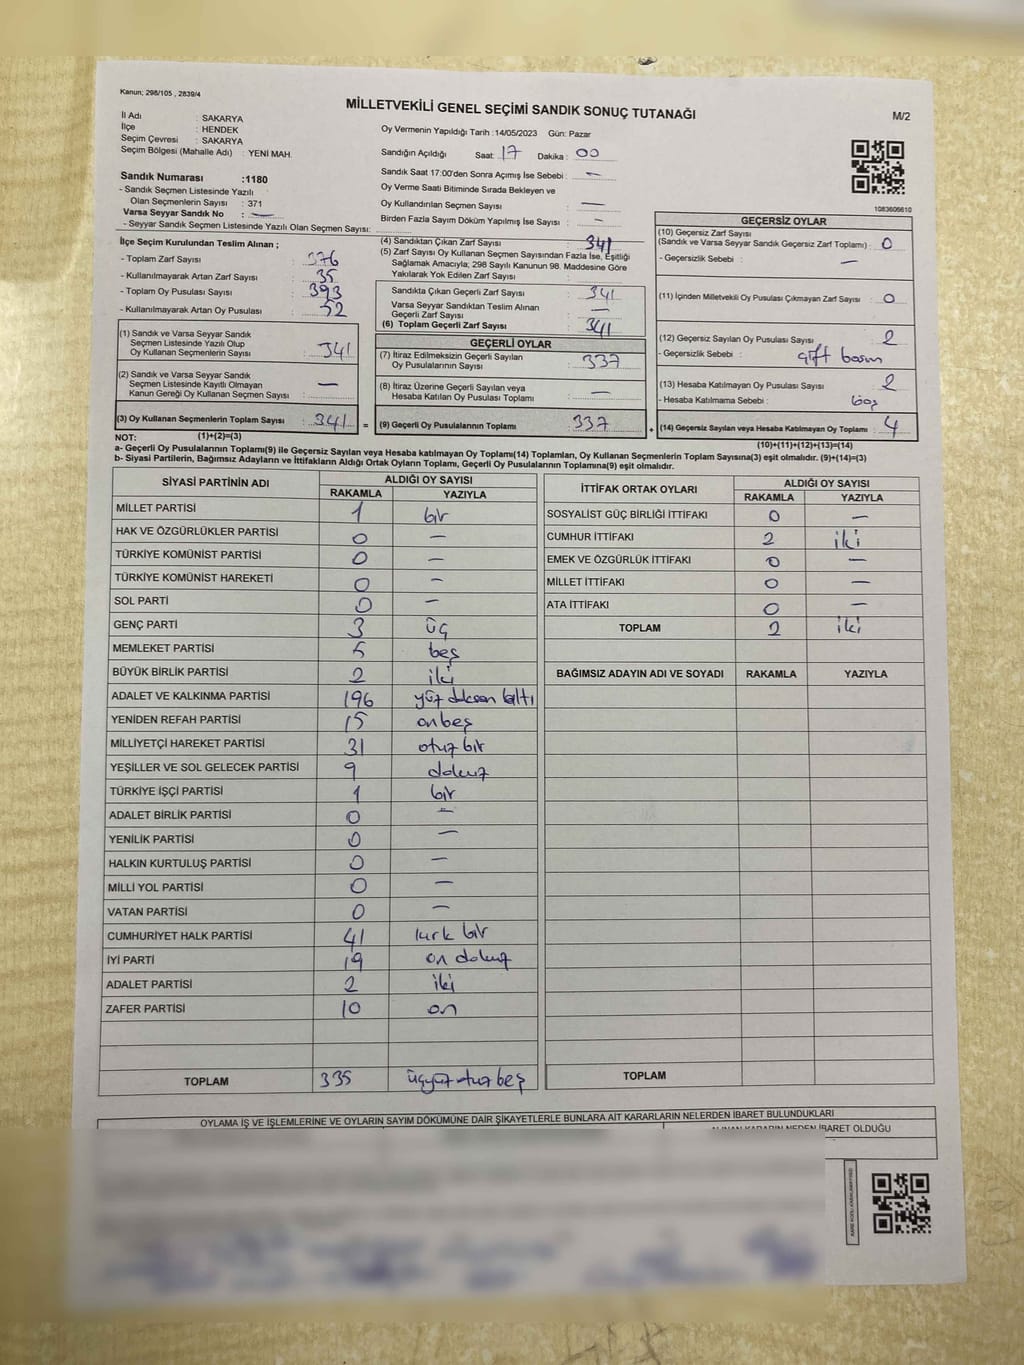 Kanun; 298/105 , 2839/4
MİLLETVEKİLİ GENEL SEÇİMİ SANDIK SONUÇ TUTANAĞI
M/2
İl Adı : SAKARYA
İlçe : HENDEK
Seçim Çevresi : SAKARYA
Seçim Bölgesi (Mahalle Adı) : YENİ MAH.
Sandık Numarası :1180
- Sandık Seçmen Listesinde Yazılı
Olan Seçmenlerin Sayısı : 371
Varsa Seyyar Sandık No : —
- Seyyar Sandık Seçmen Listesinde Yazılı Olan Seçmen Sayısı:
Oy Vermenin Yapıldığı Tarih :14/05/2023 Gün: Pazar
Sandığın Açıldığı Saat: 17 Dakika : 00
Sandık Saat 17:00'den Sonra Açımış İse Sebebi : —
Oy Verme Saati Bitiminde Sırada Bekleyen ve
Oy Kullandırılan Seçmen Sayısı : —
Birden Fazla Sayım Döküm Yapılmış İse Sayısı : —
1083606610
İlçe Seçim Kurulundan Teslim Alınan ;
- Toplam Zarf Sayısı : 376
- Kullanılmayarak Artan Zarf Sayısı : 35
- Toplam Oy Pusulası Sayısı : 393
- Kullanılmayarak Artan Oy Pusulası : 52
(1) Sandık ve Varsa Seyyar Sandık
Seçmen Listesinde Yazılı Olup
Oy Kullanan Seçmenlerin Sayısı : 341
(2) Sandık ve Varsa Seyyar Sandık
Seçmen Listesinde Kayıtlı Olmayan
Kanun Gereği Oy Kullanan Seçmen Sayısı : —
(3) Oy Kullanan Seçmenlerin Toplam Sayısı : 341 =
(1)+(2)=(3)
(4) Sandıktan Çıkan Zarf Sayısı : 341
(5) Zarf Sayısı Oy Kullanan Seçmen Sayısından Fazla İse, Eşitliği
Sağlamak Amacıyla; 298 Sayılı Kanunun 98. Maddesine Göre
Yakılarak Yok Edilen Zarf Sayısı :
Sandıkta Çıkan Geçerli Zarf Sayısı : 341
Varsa Seyyar Sandıktan Teslim Alınan
Geçerli Zarf Sayısı : —
(6) Toplam Geçerli Zarf Sayısı : 341
GEÇERLİ OYLAR
(7) İtiraz Edilmeksizin Geçerli Sayılan
Oy Pusulalarının Sayısı : 337
(8) İtiraz Üzerine Geçerli Sayılan veya
Hesaba Katılan Oy Pusulası Toplamı : —
(9) Geçerli Oy Pusulalarının Toplamı : 337 +
GEÇERSİZ OYLAR
(10) Geçersiz Zarf Sayısı
(Sandık ve Varsa Seyyar Sandık Geçersiz Zarf Toplamı) : 0
- Geçersizlik Sebebi : —
(11) İçinden Milletvekili Oy Pusulası Çıkmayan Zarf Sayısı : 0
(12) Geçersiz Sayılan Oy Pusulası Sayısı : 2
- Geçersizlik Sebebi : çift basım
(13) Hesaba Katılmayan Oy Pusulası Sayısı : 2
- Hesaba Katılmama Sebebi : boş
(14) Geçersiz Sayılan veya Hesaba Katılmayan Oy Toplamı : 4
(10)+(11)+(12)+(13)=(14)
NOT:
a- Geçerli Oy Pusulalarının Toplamı(9) ile Geçersiz Sayılan veya Hesaba katılmayan Oy Toplamı(14) Toplamları, Oy Kullanan Seçmenlerin Toplam Sayısına(3) eşit olmalıdır. (9)+(14)=(3)
b- Siyasi Partilerin, Bağımsız Adayların ve İttifakların Aldığı Ortak Oyların Toplamı, Geçerli Oy Pusulalarının Toplamına(9) eşit olmalıdır.
SİYASİ PARTİNİN ADI ALDIĞI OY SAYISI
RAKAMLA YAZIYLA
MİLLET PARTİSİ 1 bir
HAK VE ÖZGÜRLÜKLER PARTİSİ 0 —
TÜRKİYE KOMÜNİST PARTİSİ 0 —
TÜRKİYE KOMÜNİST HAREKETİ 0 —
SOL PARTİ 0 —
GENÇ PARTİ 3 üç
MEMLEKET PARTİSİ 5 beş
BÜYÜK BİRLİK PARTİSİ 2 iki
ADALET VE KALKINMA PARTİSİ 196 yüz doksan altı
YENİDEN REFAH PARTİSİ 15 onbeş
MİLLİYETÇİ HAREKET PARTİSİ 31 otuz bir
YEŞİLLER VE SOL GELECEK PARTİSİ 9 dokuz
TÜRKİYE İŞÇİ PARTİSİ 1 bir
ADALET BİRLİK PARTİSİ 0 —
YENİLİK PARTİSİ 0 —
HALKIN KURTULUŞ PARTİSİ 0 —
MİLLİ YOL PARTİSİ 0 —
VATAN PARTİSİ 0 —
CUMHURİYET HALK PARTİSİ 41 kırk bir
İYİ PARTİ 19 on dokuz
ADALET PARTİSİ 2 iki
ZAFER PARTİSİ 10 on
TOPLAM 335 üçyüz otuz beş
İTTİFAK ORTAK OYLARI ALDIĞI OY SAYISI
RAKAMLA YAZIYLA
SOSYALİST GÜÇ BİRLİĞİ İTTİFAKI 0 —
CUMHUR İTTİFAKI 2 iki
EMEK VE ÖZGÜRLÜK İTTİFAKI 0 —
MİLLET İTTİFAKI 0 —
ATA İTTİFAKI 0 —
TOPLAM 2 iki
BAĞIMSIZ ADAYIN ADI VE SOYADI RAKAMLA YAZIYLA
TOPLAM
OYLAMA İŞ VE İŞLEMLERİNE VE OYLARIN SAYIM DÖKÜMÜNE DAİR ŞİKAYETLERLE BUNLARA AİT KARARLARIN NELERDEN İBARET BULUNDUKLARI
ALINAN KARARIN NEDEN İBARET OLDUĞU